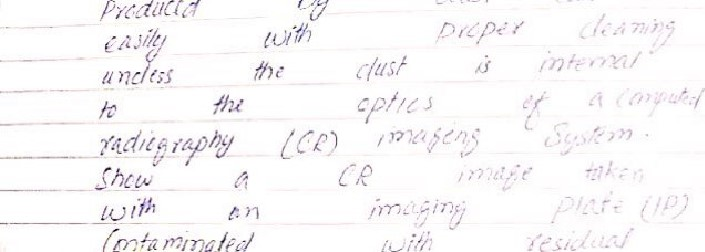 Produced by
easily with proper cleaning
unless the dust is internal
to the optics of a computed
radiography (CR) imaging System.
Show a CR image taken
with an imaging plate (IP)
Contaminated with residual